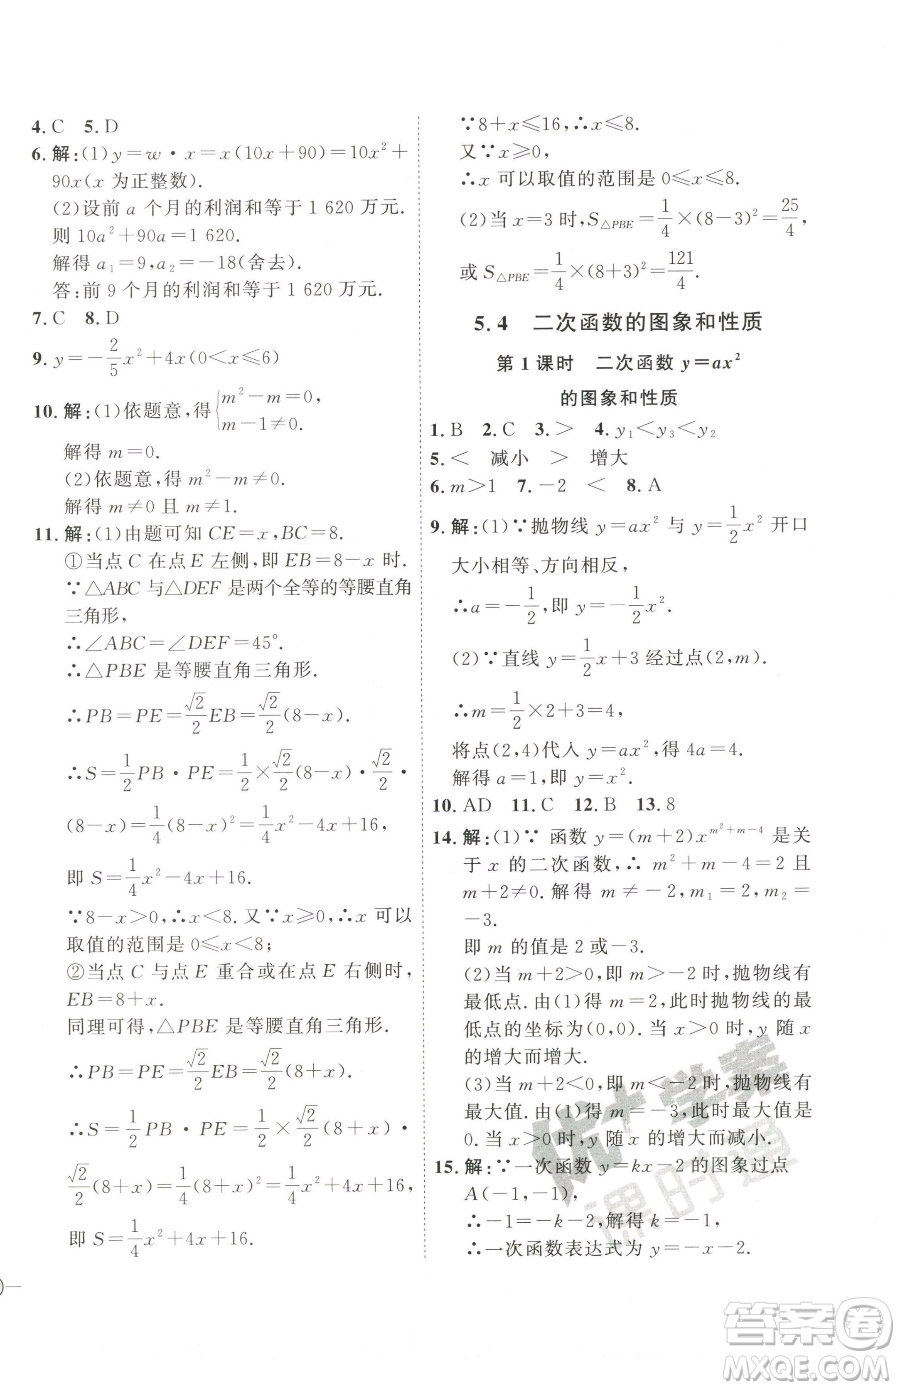 4. C  5. D
6. 解:(1)y=w·x=x(10x+90)=10x²+
90x(x 为正整数).
(2)设前 a 个月的利润和等于 1 620 万元.
则 10a²+90a=1 620.
解得 a₁=9,a₂=-18(舍去).
答:前 9 个月的利润和等于 1 620 万元.
7. C  8. D
9. y=-2/5x²+4x(0<x≤6)
10. 解:(1)依题意,得{m²-m=0,
m-1≠0.
解得 m=0.
(2)依题意,得 m²-m≠0.
解得 m≠0 且 m≠1.
11. 解:(1)由题可知 CE=x,BC=8.
①当点 C 在点 E 左侧,即 EB=8-x 时.
∵△ABC 与△DEF 是两个全等的等腰直角
三角形,
∴∠ABC=∠DEF=45°.
∴△PBE 是等腰直角三角形.
∴PB=PE=√2/2EB=√2/2(8-x).
∴S=1/2PB·PE=1/2×√2/2(8-x)·√2/2·
(8-x)=1/4(8-x)²=1/4x²-4x+16,
即 S=1/4x²-4x+16.
∵8-x>0,∴x<8. 又∵x≥0,∴x 可以
取值的范围是 0≤x<8;
②当点 C 与点 E 重合或在点 E 右侧时,
EB=8+x.
同理可得,△PBE 是等腰直角三角形.
∴PB=PE=√2/2EB=√2/2(8+x).
∴S=1/2PB·PE=1/2×√2/2(8+x)·
√2/2(8+x)=1/4(8+x)²=1/4x²+4x+16,
即 S=1/4x²+4x+16.
∵8+x≤16,∴x≤8.
又∵x≥0,
∴x 可以取值的范围是 0≤x≤8.
(2)当 x=3 时,S△PBE=1/4×(8-3)²=25/4,
或 S△PBE=1/4×(8+3)²=121/4.
5.4 二次函数的图象和性质
第 1 课时 二次函数 y=ax²
的图象和性质
1. B  2. C  3. >  4. y₁<y₃<y₂
5. <  减小  >  增大
6. m>1  7. -2  <  8. A
9. 解:(1)∵抛物线 y=ax² 与 y=1/2x² 开口
大小相等、方向相反,
∴a=-1/2,即 y=-1/2x².
(2)∵直线 y=1/2x+3 经过点(2,m).
∴m=1/2×2+3=4,
将点(2,4)代入 y=ax²,得 4a=4.
解得 a=1,即 y=x².
10. AD  11. C  12. B  13. 8
14. 解:(1)∵ 函数 y=(m+2)x^(m²+m-4) 是关
于 x 的二次函数,∴ m²+m-4=2 且
m+2≠0. 解得 m≠-2,m₁=2,m₂=
-3.
即 m 的值是 2 或-3.
(2)当 m+2>0,即 m>-2 时,抛物线有
最低点. 由(1)得 m=2,此时抛物线的最
低点的坐标为(0,0). 当 x>0 时,y 随 x
的增大而增大.
(3)当 m+2<0,即 m<-2 时,抛物线有
最大值. 由(1)得 m=-3,此时最大值是
0. 当 x>0 时,y 随 x 的增大而减小.
15. 解:∵一次函数 y=kx-2 的图象过点
A(-1,-1),
∴-1=-k-2,解得 k=-1,
∴一次函数表达式为 y=-x-2.
优+学案
课时通
答案圈
MXQE.COM